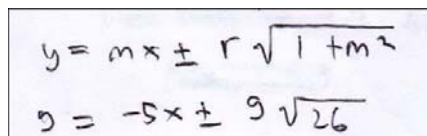 y = mx ± r√(1 + m²)
y = -5x ± 9√26